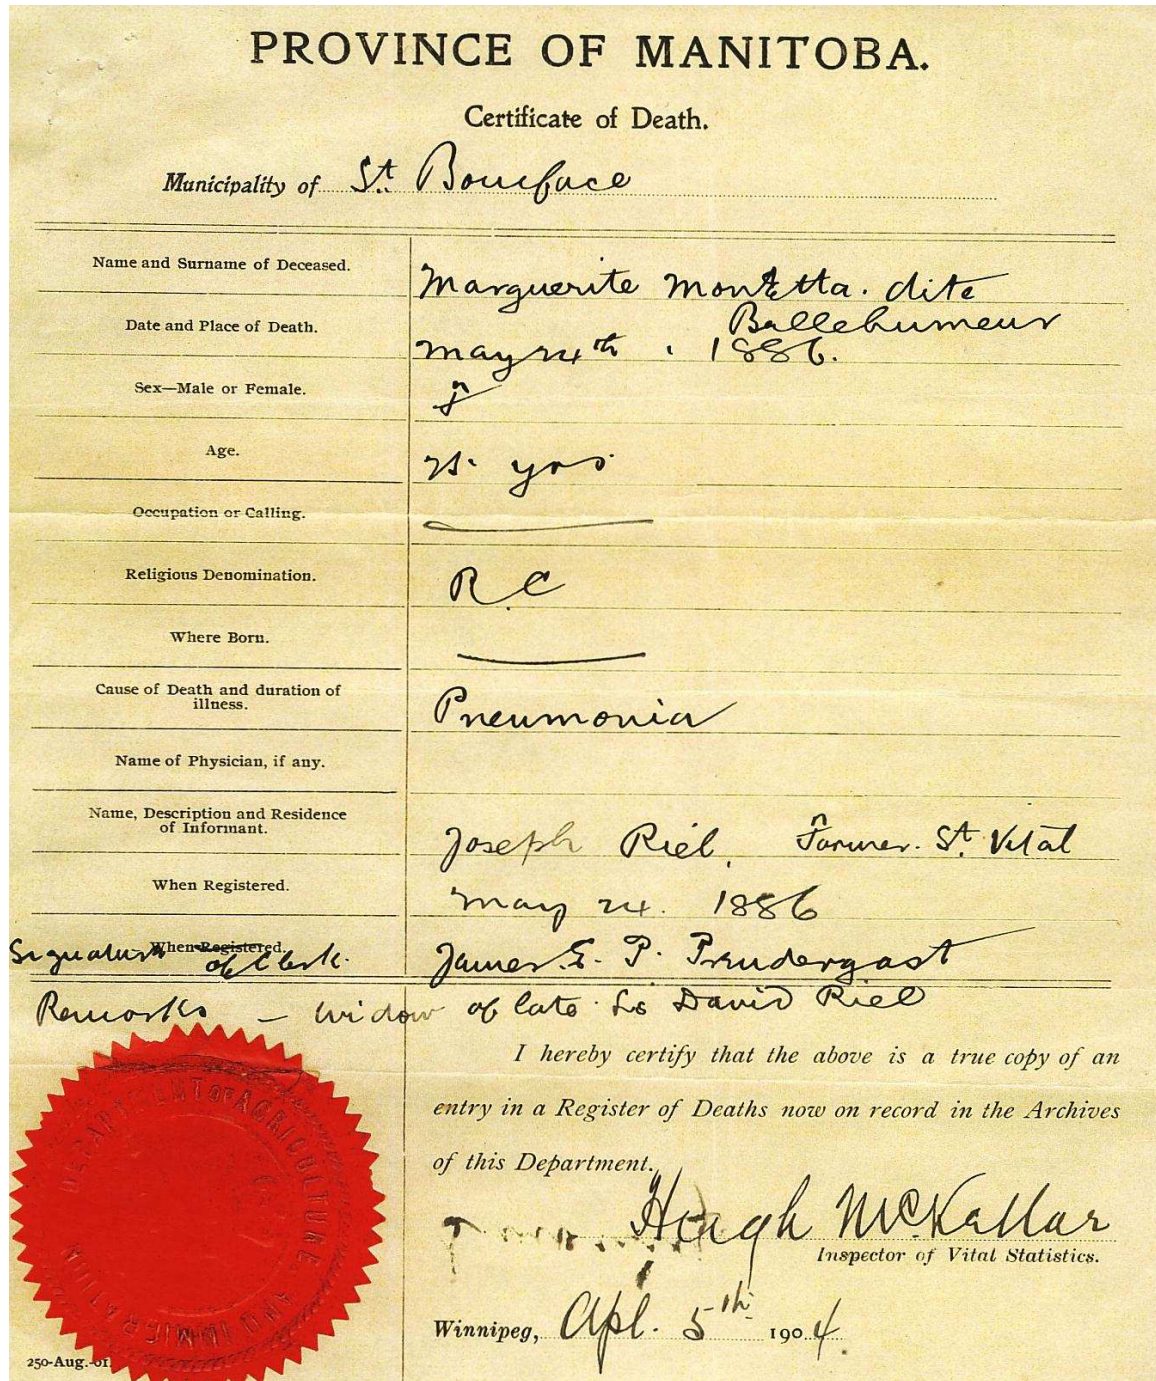 PROVINCE OF MANITOBA.
Certificate of Death.
Municipality of St. Boniface
Name and Surname of Deceased. Marguerite Montetta. dite
Ballehumeur
Date and Place of Death. May 24th, 1886.
Sex—Male or Female. F
Age. 25. yrs.
Occupation or Calling.
Religious Denomination. R.C
Where Born.
Cause of Death and duration of
illness. Pneumonia
Name of Physician, if any.
Name, Description and Residence
of Informant. Joseph Riel, Farmer. St. Vital
When Registered. May 24. 1886
When Registered.
Signature of Clerk. James E. P. Prendergast
Remarks — widow of late Ls David Riel
I hereby certify that the above is a true copy of an
entry in a Register of Deaths now on record in the Archives
of this Department.
Hugh McKellar
Inspector of Vital Statistics.
Winnipeg, Apl. 5th 1904.
DEPARTMENT OF AGRICULTURE AND IMMIGRATION
250-Aug.-01